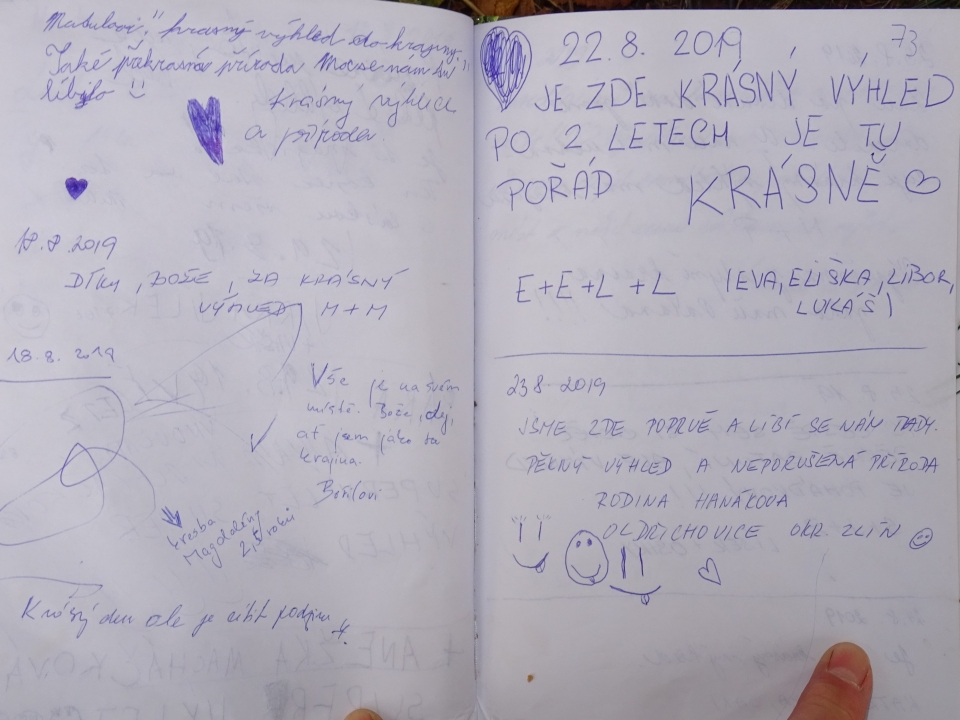 krásný výhled do krajiny.
Také překrasná příroda Moc se nám tu
líbylo
Krásný výhled
a příroda.
18.8.2019
DÍKY, BOŽE, ZA KRÁSNÝ
VÝHLED M+M
18.8. 2019
Vše je na svém
místě. Bože, dej,
ať jsem jako ta
krajina.
kresba
Magdalény
2,5 roku
den ale je cítit podzim
73
22.8. 2019
JE ZDE KRÁSNÝ VÝHLED
PO 2 LETECH JE TU
POŘÁD KRÁSNĚ
E+E+L+L (EVA, ELIŠKA, LIBOR,
LUKÁŠ)
23.8 2019
JSME ZDE POPRVÉ A LÍBÍ SE NÁM TADY.
PĚKNÝ VÝHLED A NEPORUŠENÁ PŘÍRODA
RODINA HANÁKOVA
OLDŘICHOVICE OKR. ZLÍN